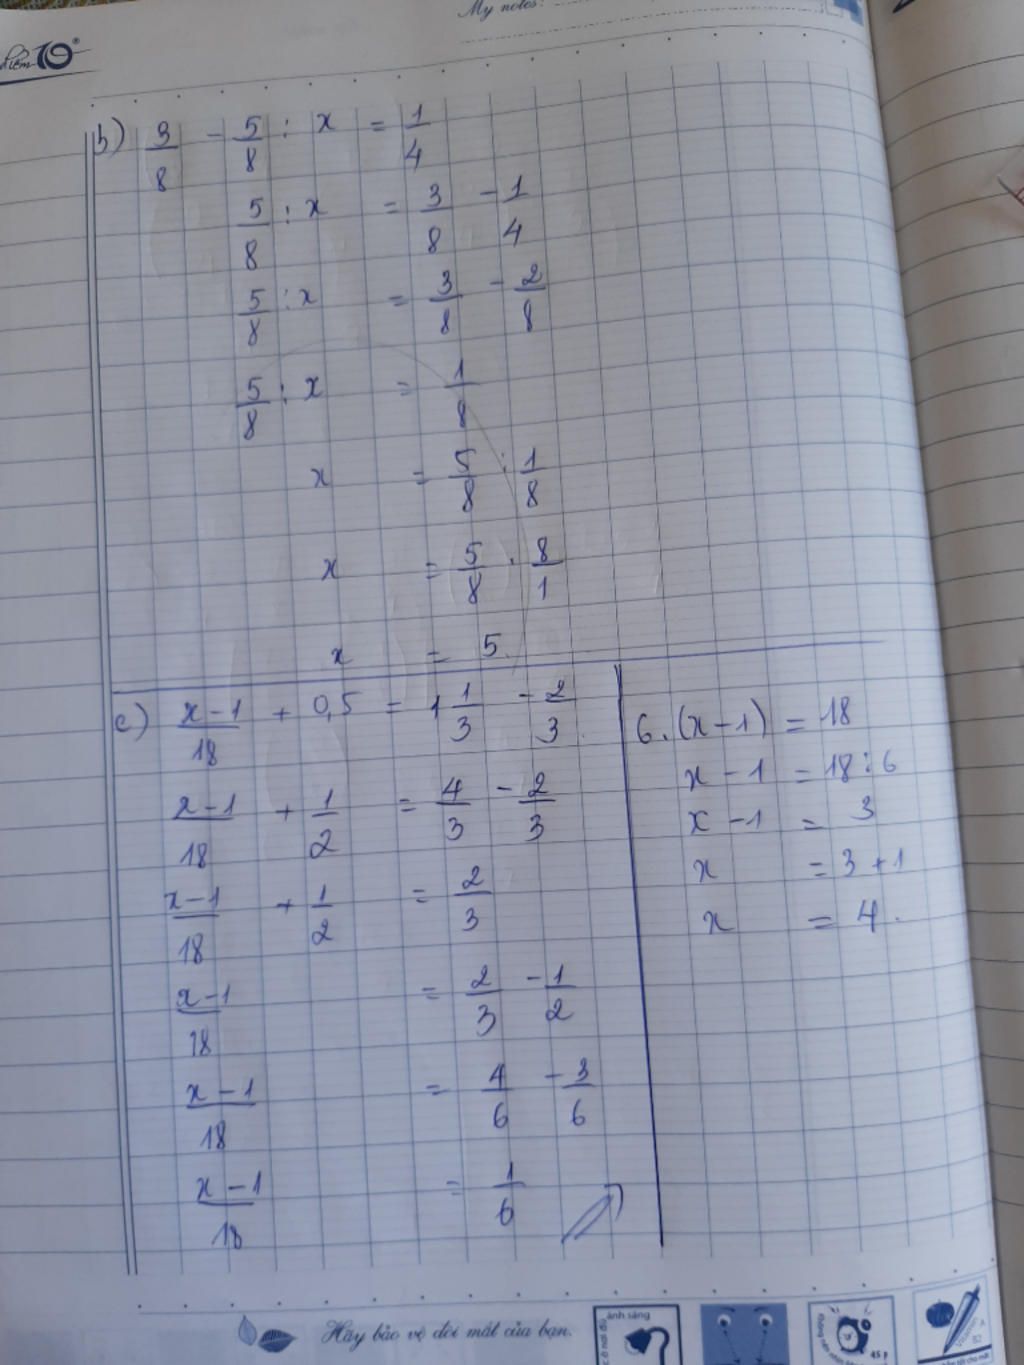 My notes:
điểm 10
b) 3/8 - 5/8 : x = 1/4
5/8 : x = 3/8 - 1/4
5/8 : x = 3/8 - 2/8
5/8 : x = 1/8
x = 5/8 : 1/8
x = 5/8 . 8/1
x = 5.
c) x-1/18 + 0,5 = 1 1/3 - 2/3
x-1/18 + 1/2 = 4/3 - 2/3
x-1/18 + 1/2 = 2/3
x-1/18 = 2/3 - 1/2
x-1/18 = 4/6 - 3/6
x-1/18 = 1/6
6.(x-1) = 18
x-1 = 18:6
x-1 = 3
x = 3+1
x = 4.
Hãy bảo vệ đôi mắt của bạn.
ánh sáng
45 p